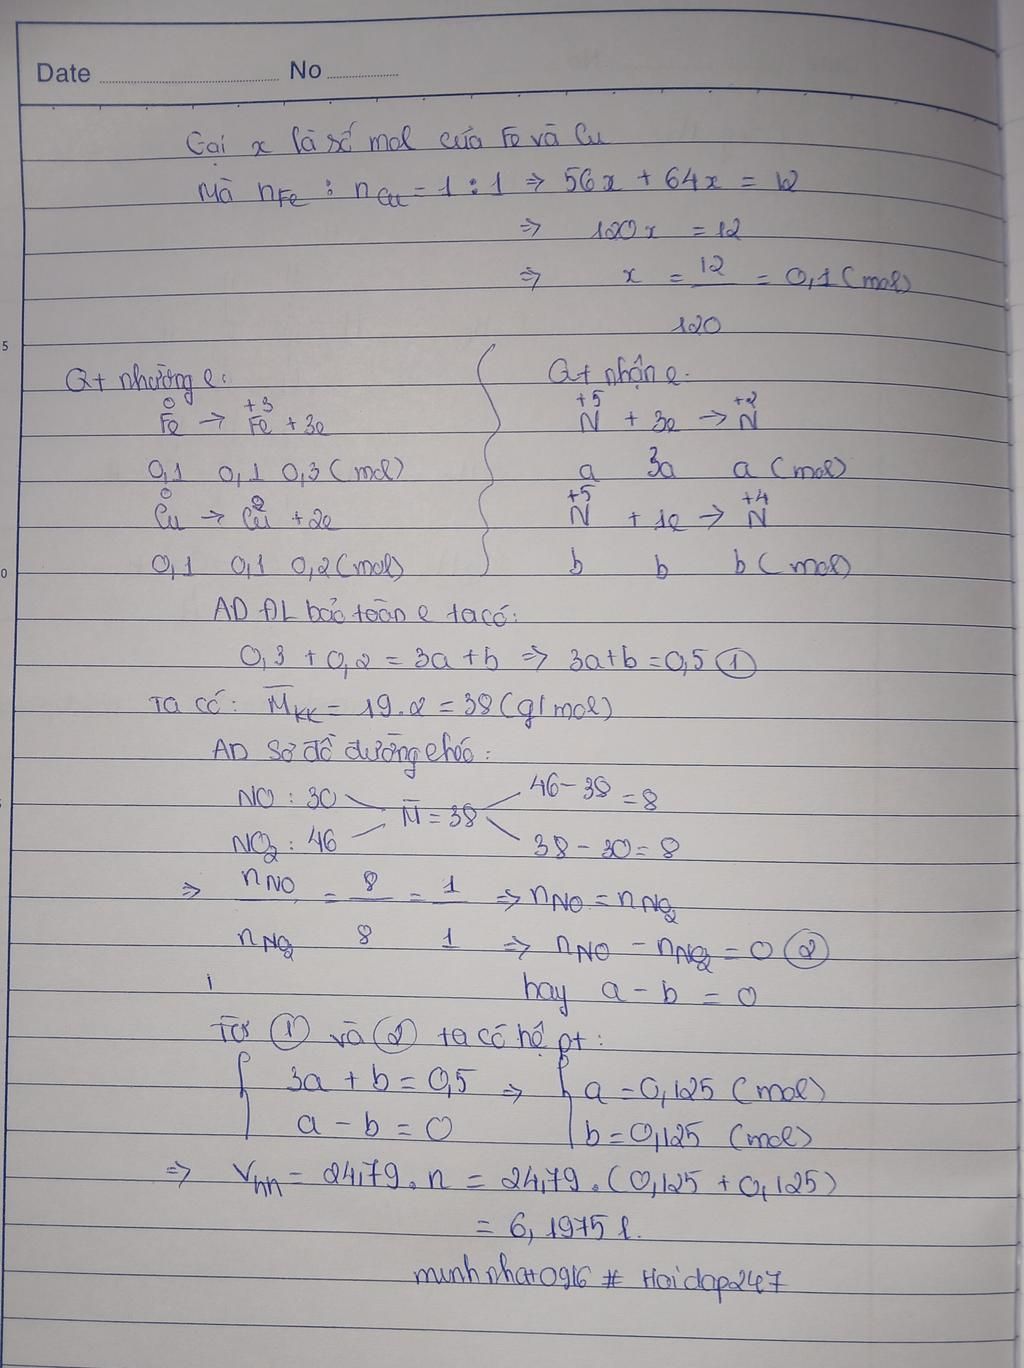 Date ........ No ........
Gọi x là số mol của Fe và Cu
Mà nFe : nCu = 1 : 1 => 56x + 64x = 12
=> 120x = 12
=> x = 12/120 = 0,1 (mol)
5
Qt nhường e: Qt nhận e:
Fe⁰ → Fe⁺³ + 3e N⁺⁵ + 3e → N⁺²
0,1 0,1 0,3 (mol) a 3a a (mol)
Cu⁰ → Cu² + 2e N⁺⁵ + 1e → N⁺⁴
0,1 0,1 0,2 (mol) b b b (mol)
0
AD ĐL bảo toàn e ta có:
0,3 + 0,2 = 3a + b => 3a + b = 0,5 ①
Ta có: M̄KK = 19.2 = 38 (g/mol)
AD sơ đồ đường chéo:
NO : 30 46 - 38 = 8
M̄ = 38
NO₂ : 46 38 - 30 = 8
=> nNO/nNO₂ = 8/8 = 1/1 => nNO = nNO₂
=> nNO - nNO₂ = 0 ②
hay a - b = 0
Từ ① và ② ta có hệ pt:
3a + b = 0,5 => a = 0,125 (mol)
a - b = 0 b = 0,125 (mol)
=> Vhh = 24,79.n = 24,79.(0,125 + 0,125)
= 6,1975 l.
minhnhat0916 # Hoidap247